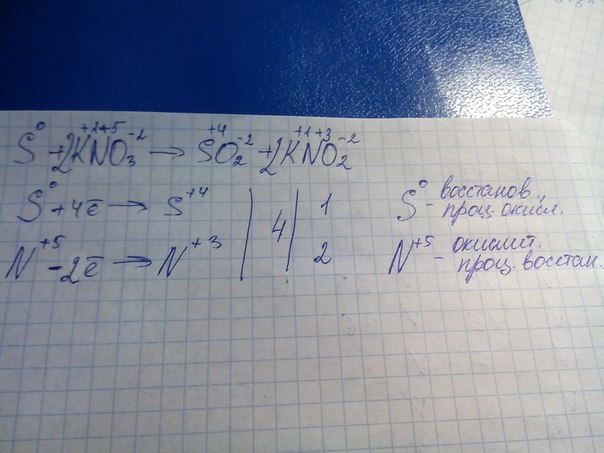 S⁰ + 2K⁺¹N⁺⁵O₃⁻² → S⁺⁴O₂⁻² + 2K⁺¹N⁺³O₂⁻²
S⁰ + 4ē → S⁺⁴ | 4 | 1 S⁰ - восстанов., проц. окисл.
N⁺⁵ - 2ē → N⁺³ | | 2 N⁺⁵ - окислит. проц. восстан.